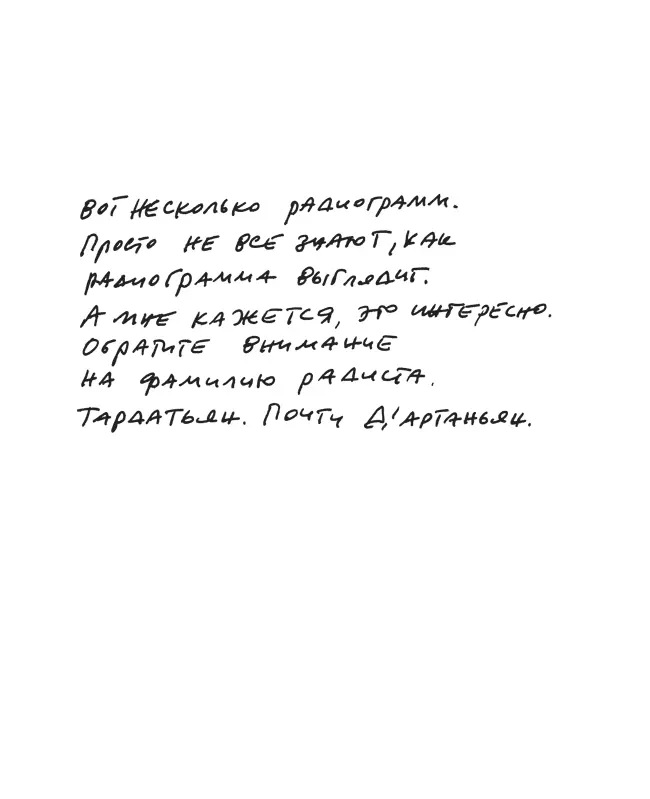 Вот несколько радиограмм.
Просто не все знают, как
радиограмма выглядит.
А мне кажется, это интересно.
Обратите внимание
на фамилию радиста.
Тардатьян. Почти Д'Артаньян.